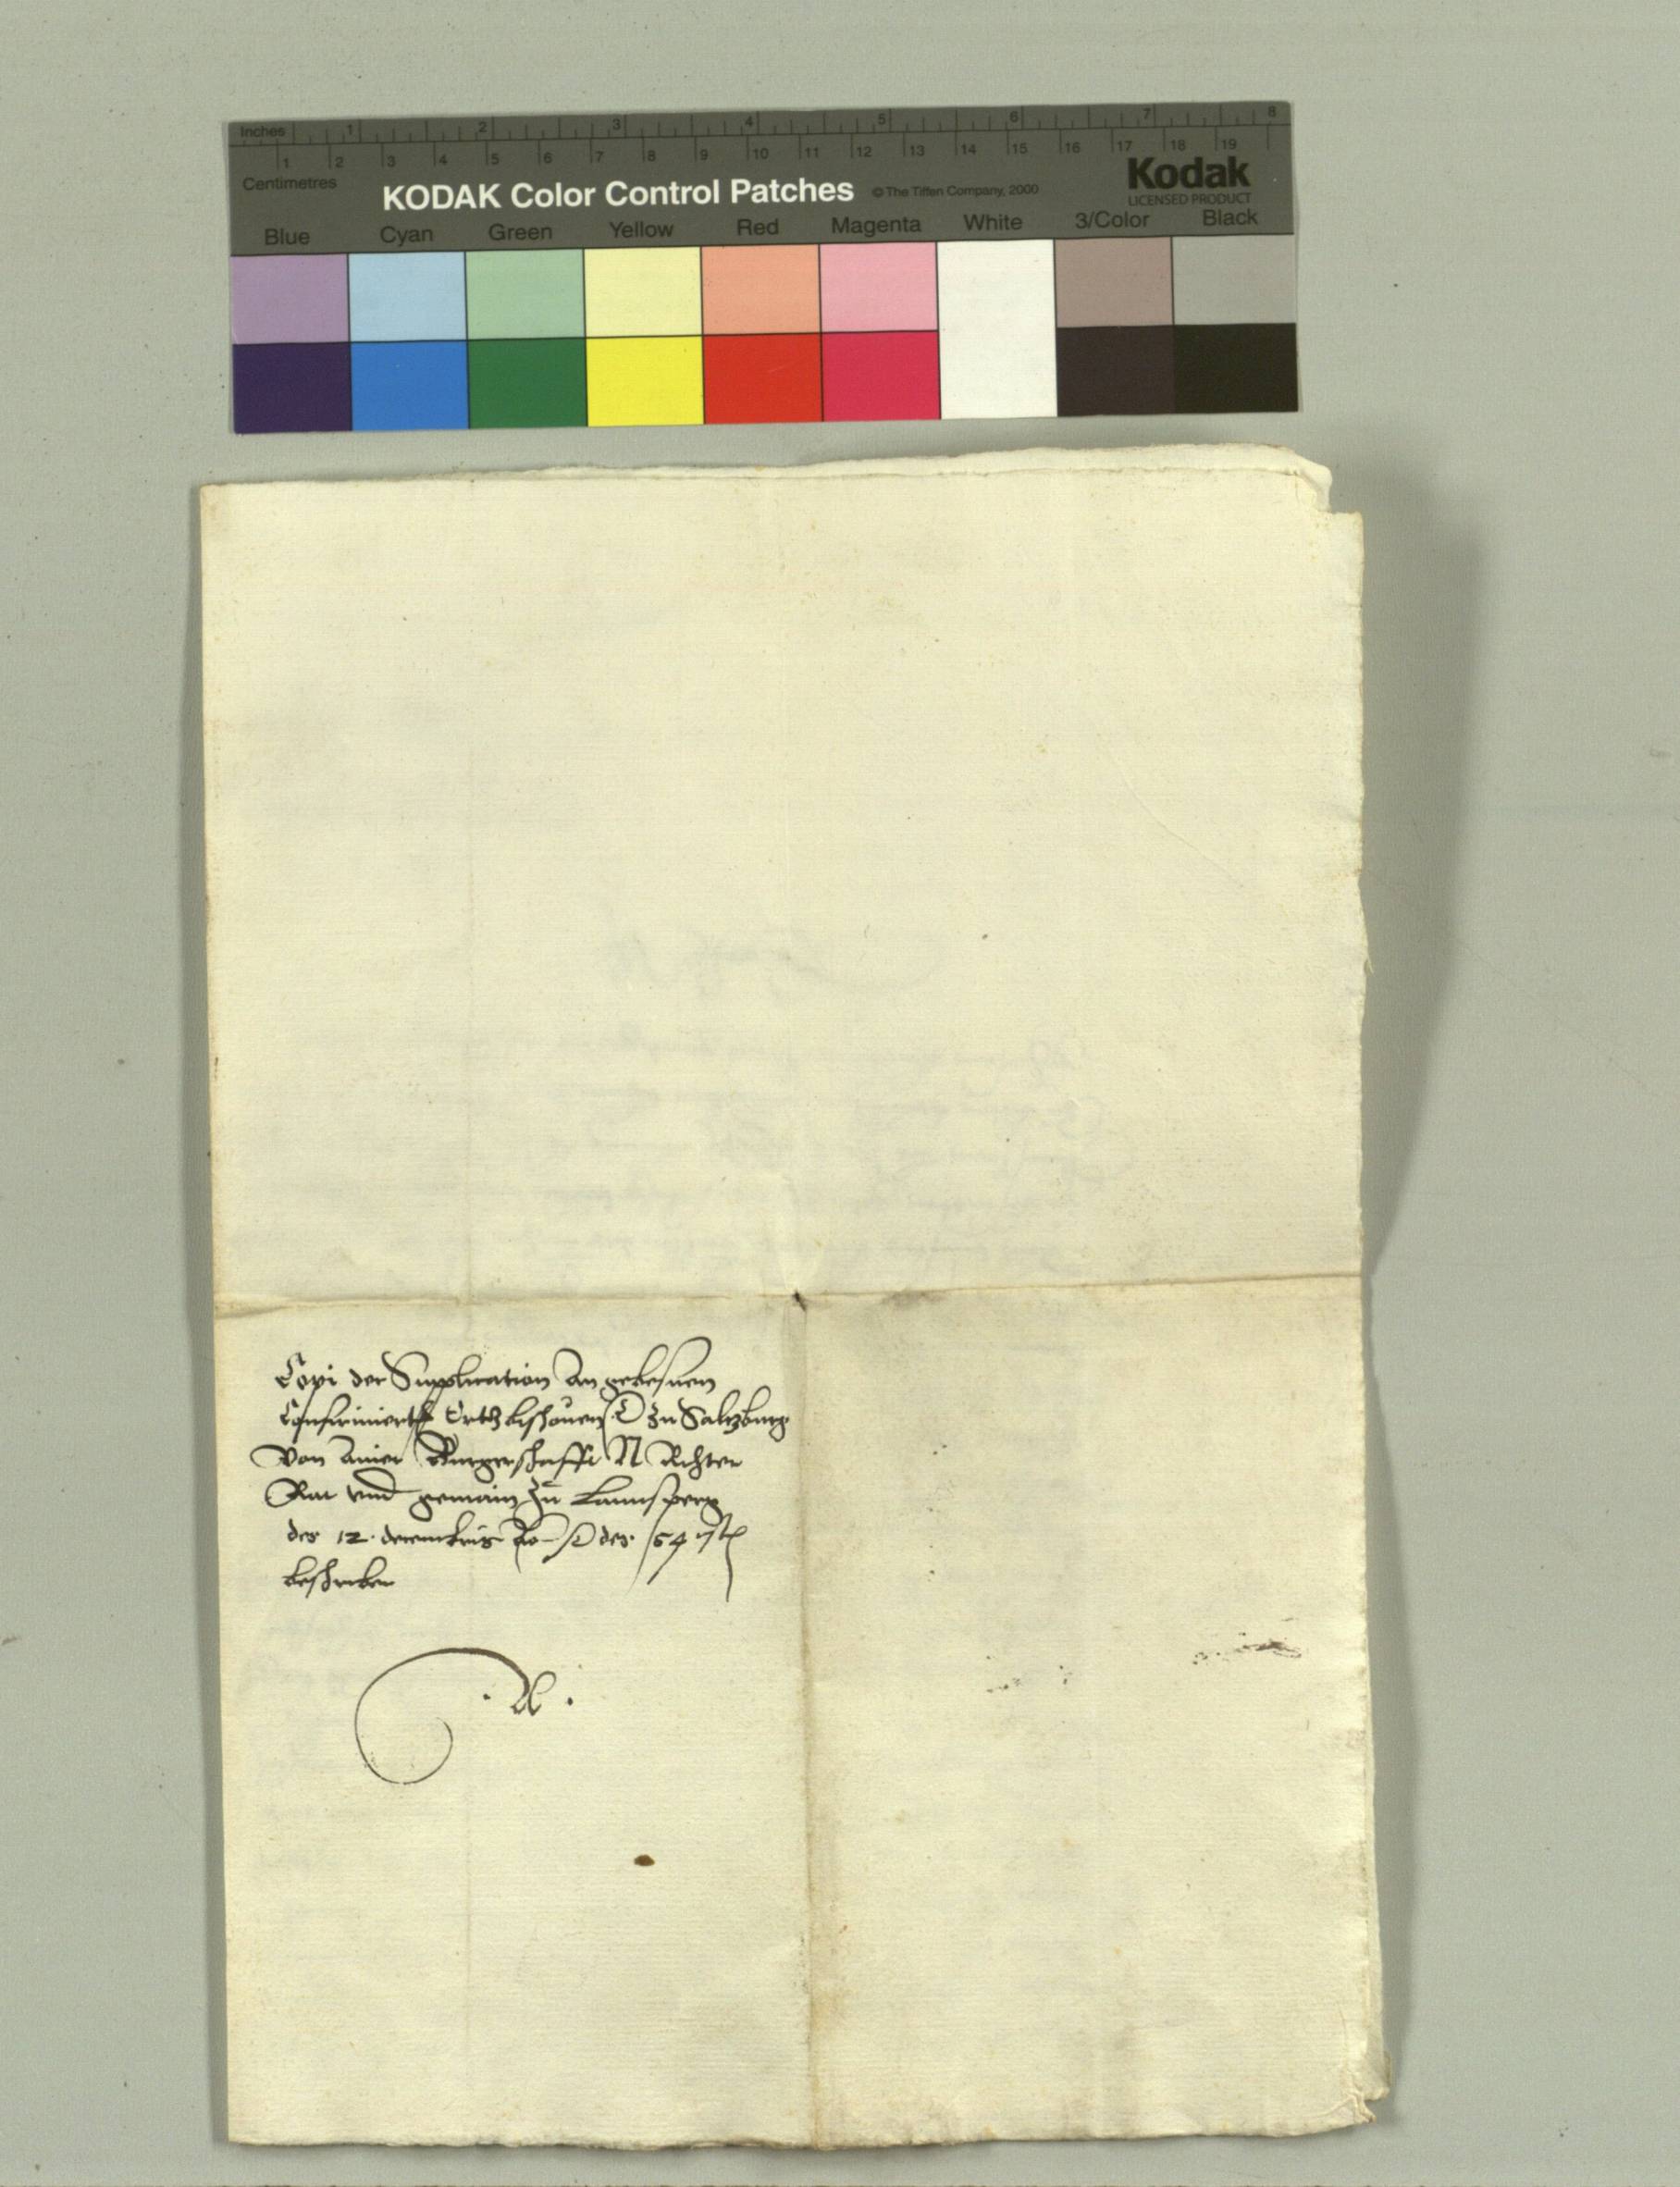 Inches 1 2 3 4 5 6 7 8
1 2 3 4 5 6 7 8 9 10 11 12 13 14 15 16 17 18 19
Centimetres
KODAK Color Control Patches © The Tiffen Company, 2000 Kodak
LICENSED PRODUCT
Blue Cyan Green Yellow Red Magenta White 3/Color Black
Copi der Supplication An
Confirmiertn Ertzbischouen zu Salzburg
von ainer Burgerschafft N Richter
Rat vnd gemain zu Lauffen
des 12. decembris des 54
beschehen